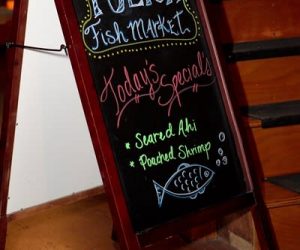 Fish Market
Today's Specials
* Seared Ahi
* Poached Shrimp